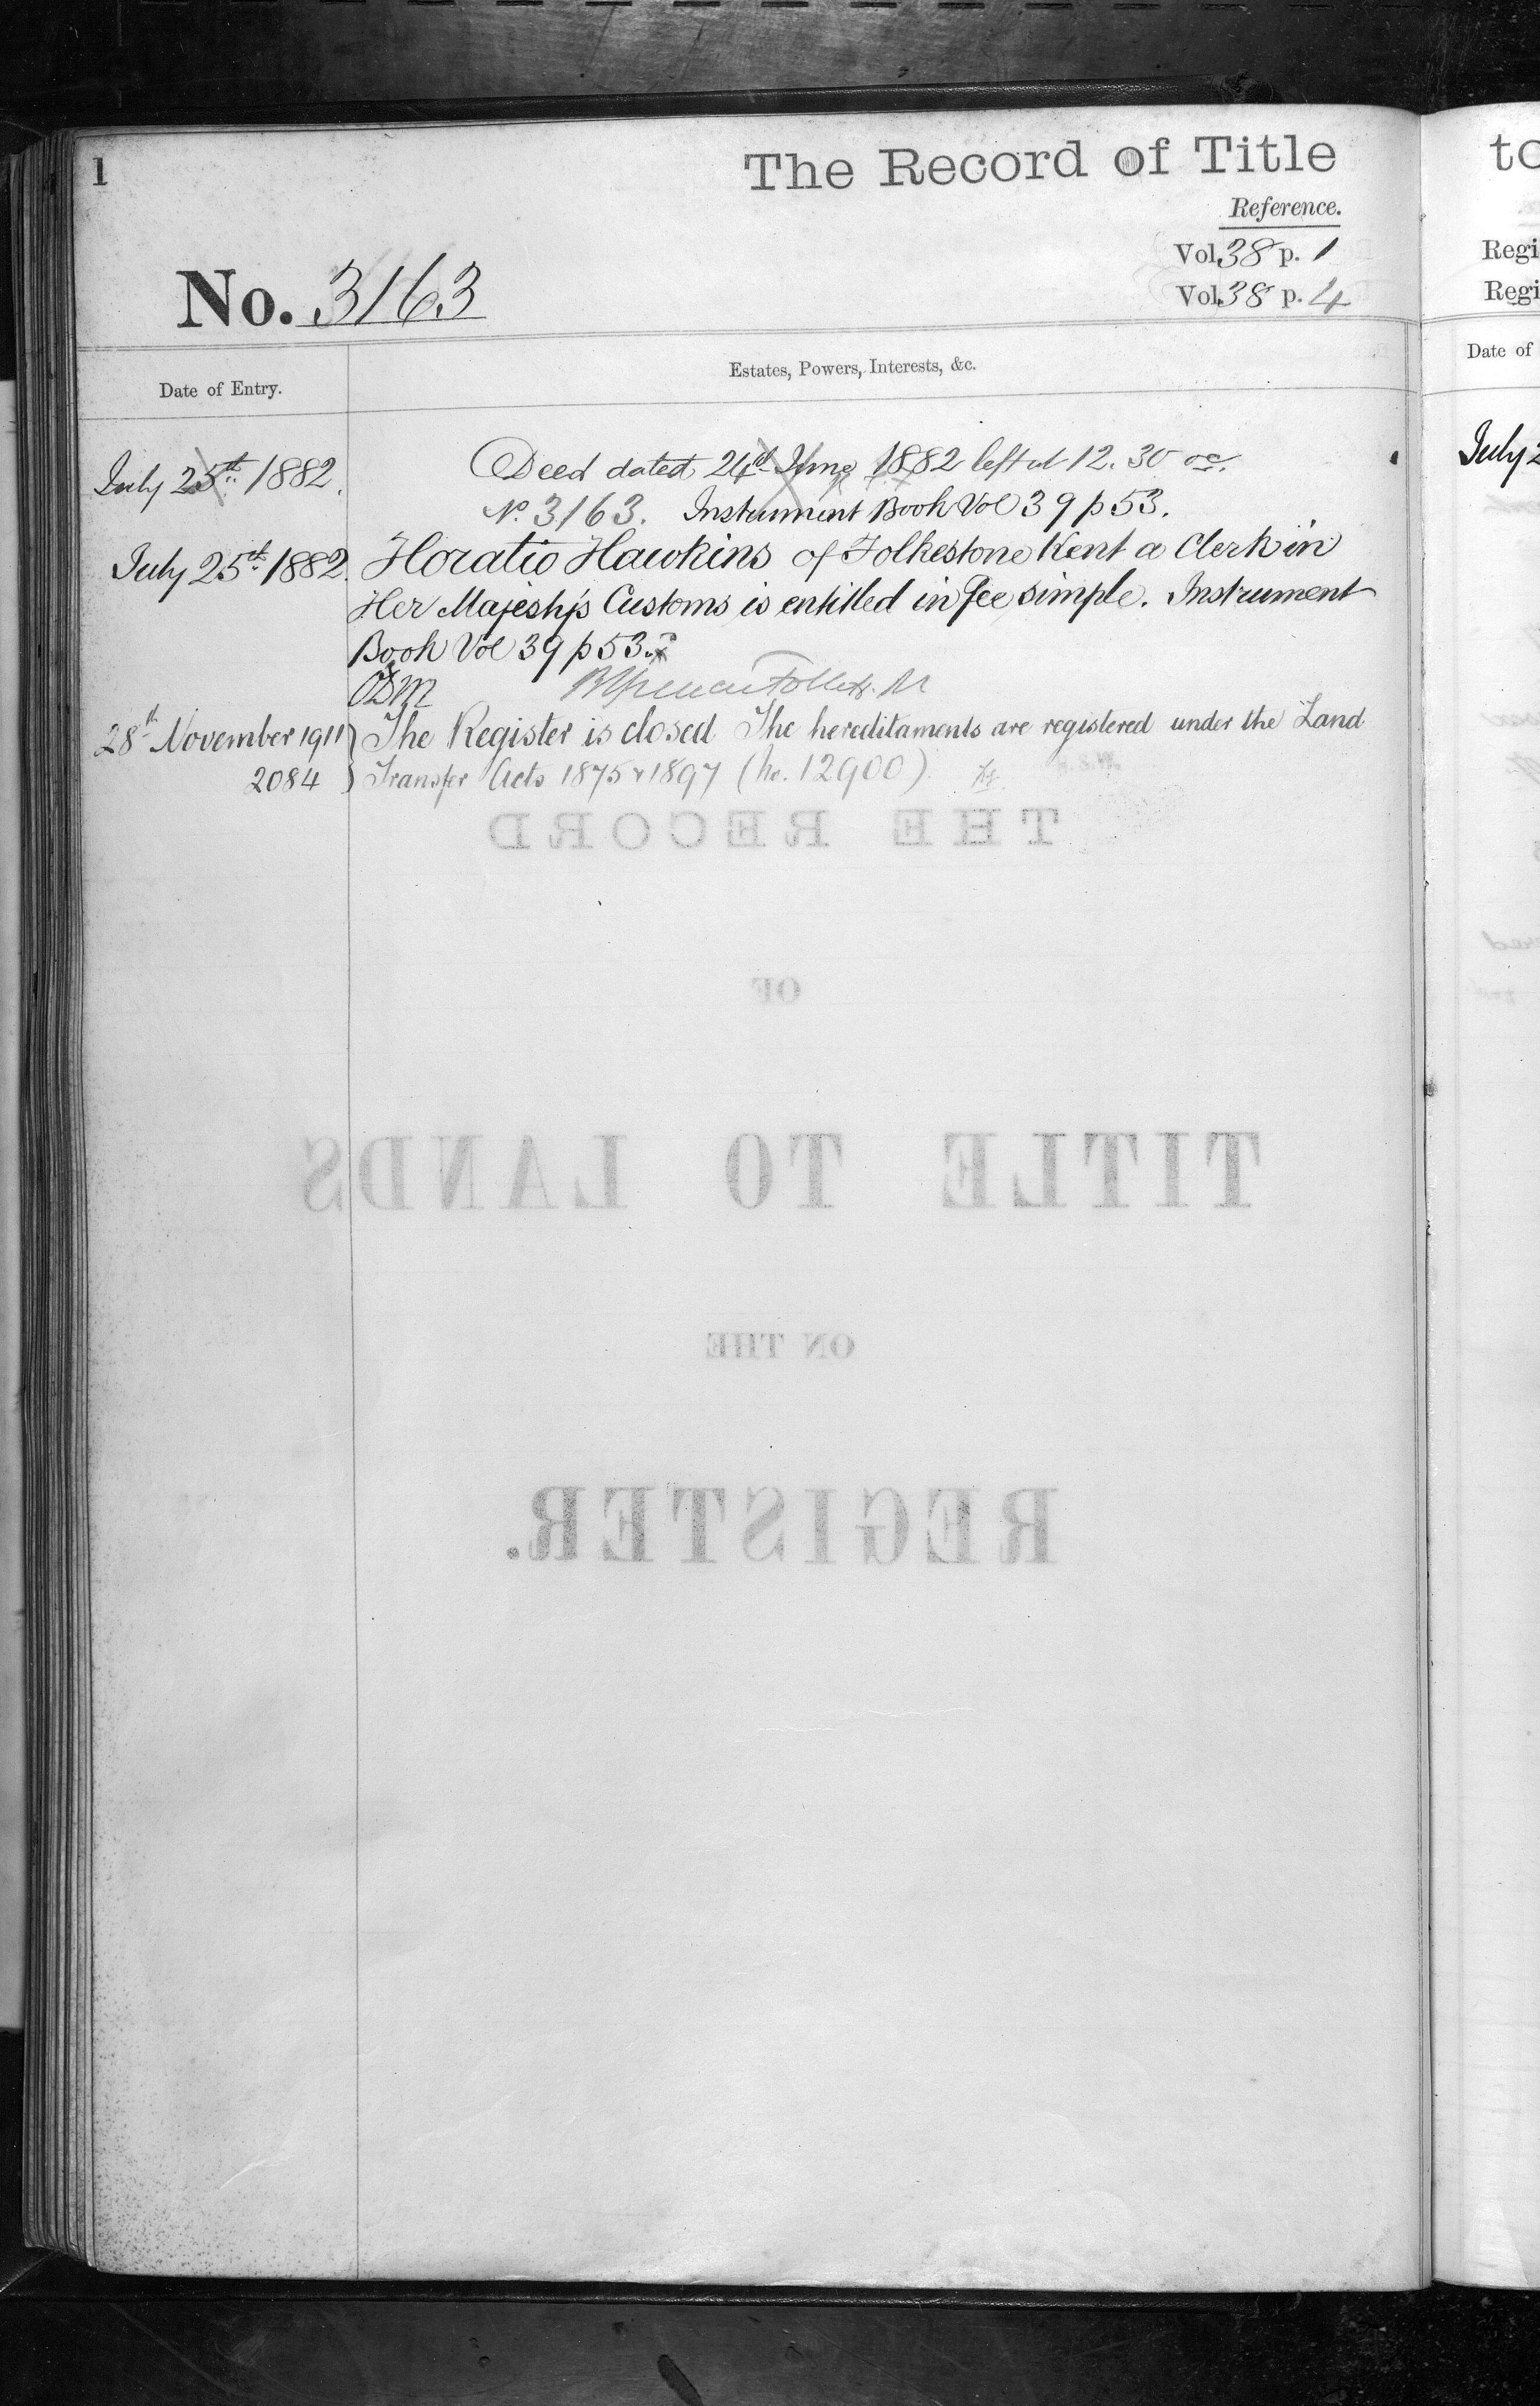 1
The Record of Title
Reference.
Vol. 38 p. 1
Vol. 38 p. 4
No. 3163
Date of Entry.
Estates, Powers, Interests, &c.
July 25th 1882.
Deed dated 24th June 1882 left at 12.30 oc.
No. 3163. Instrument Book Vol 39 p 53.
July 25th 1882. Horatio Hawkins of Folkestone Kent a Clerk in
Her Majesty's Customs is entitled in fee simple. Instrument
Book Vol 39 p 53.
28th November 1911 The Register is closed The hereditaments are registered under the Land
2084 Transfer Acts 1875 & 1897 (No. 12900).
THE RECORD
OF
TITLE TO LANDS
ON THE
REGISTER.
to
Regi
Regi
Date of
July 2